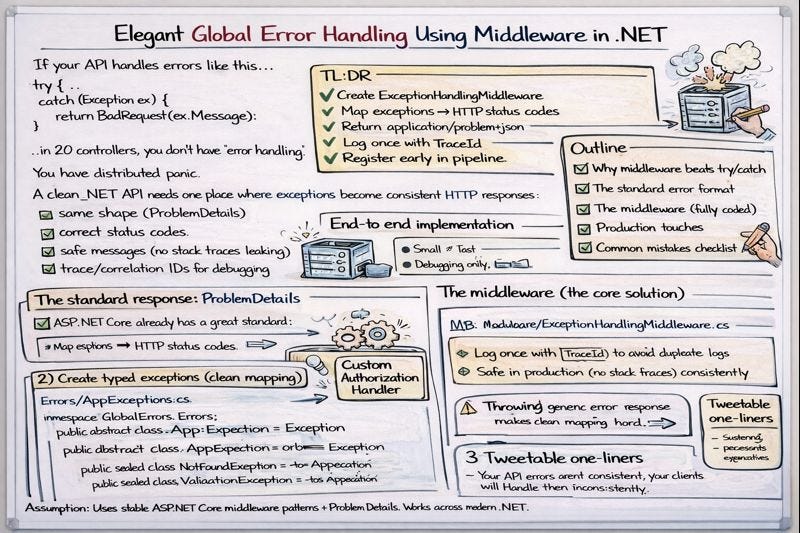 Elegant Global Error Handling Using Middleware in .NET
If your API handles errors like this...
try { ..
catch (Exception ex) {
return BadRequest(ex.Message):
}
..in 20 controllers, you don't have "error handling.
You have distributed panic.
A clean_NET API needs one place where exceptions become consistent HTTP responses:
same shape (ProblemDetails)
correct status codes.
safe messages (no stack traces leaking)
trace/correlation IDs for debugging
TL:DR
Create ExceptionHandlingMiddleware
Map exceptions → HTTP status codes
Return application/problem+json
Log once with TraceId
Register early in pipeline.
Outline
Why middleware beats try/catch
The standard error format
The middleware (fully coded)
Production touches
Common mistakes checklist
End-to end implementation
Small
Debugging only,
The standard response: ProblemDetails
ASP.NET Core already has a great standard:
Map eptions → HTTP status codes.
Custom
Authorization
Handler
2) Create typed exceptions (clean mapping)
Errors/AppExceptions.cs
inmespace GlobalErrors. Errors;
public abstract class. App:Expection = Exception
public dbstract class. AppExpection = Exception
public sealed class NotFoundExeption
public sealed class, ValiaationException
The middleware (the core solution)
MB: /ExceptionHandlingMiddleware.cs
Log once with TraceId) to avoid dupleate logs
Safe in production (no stack fraces) consistently
Throwing generic error response
makes clean mapping hard.
Tweetable
one-liners
3 Tweetable one-liners
- Your API errors arent consistent, your clients
will Handle then inconsistently.
Assumption: Uses stable ASP.NET Core middleware patterns + Problem Details. Works across modern .NET.